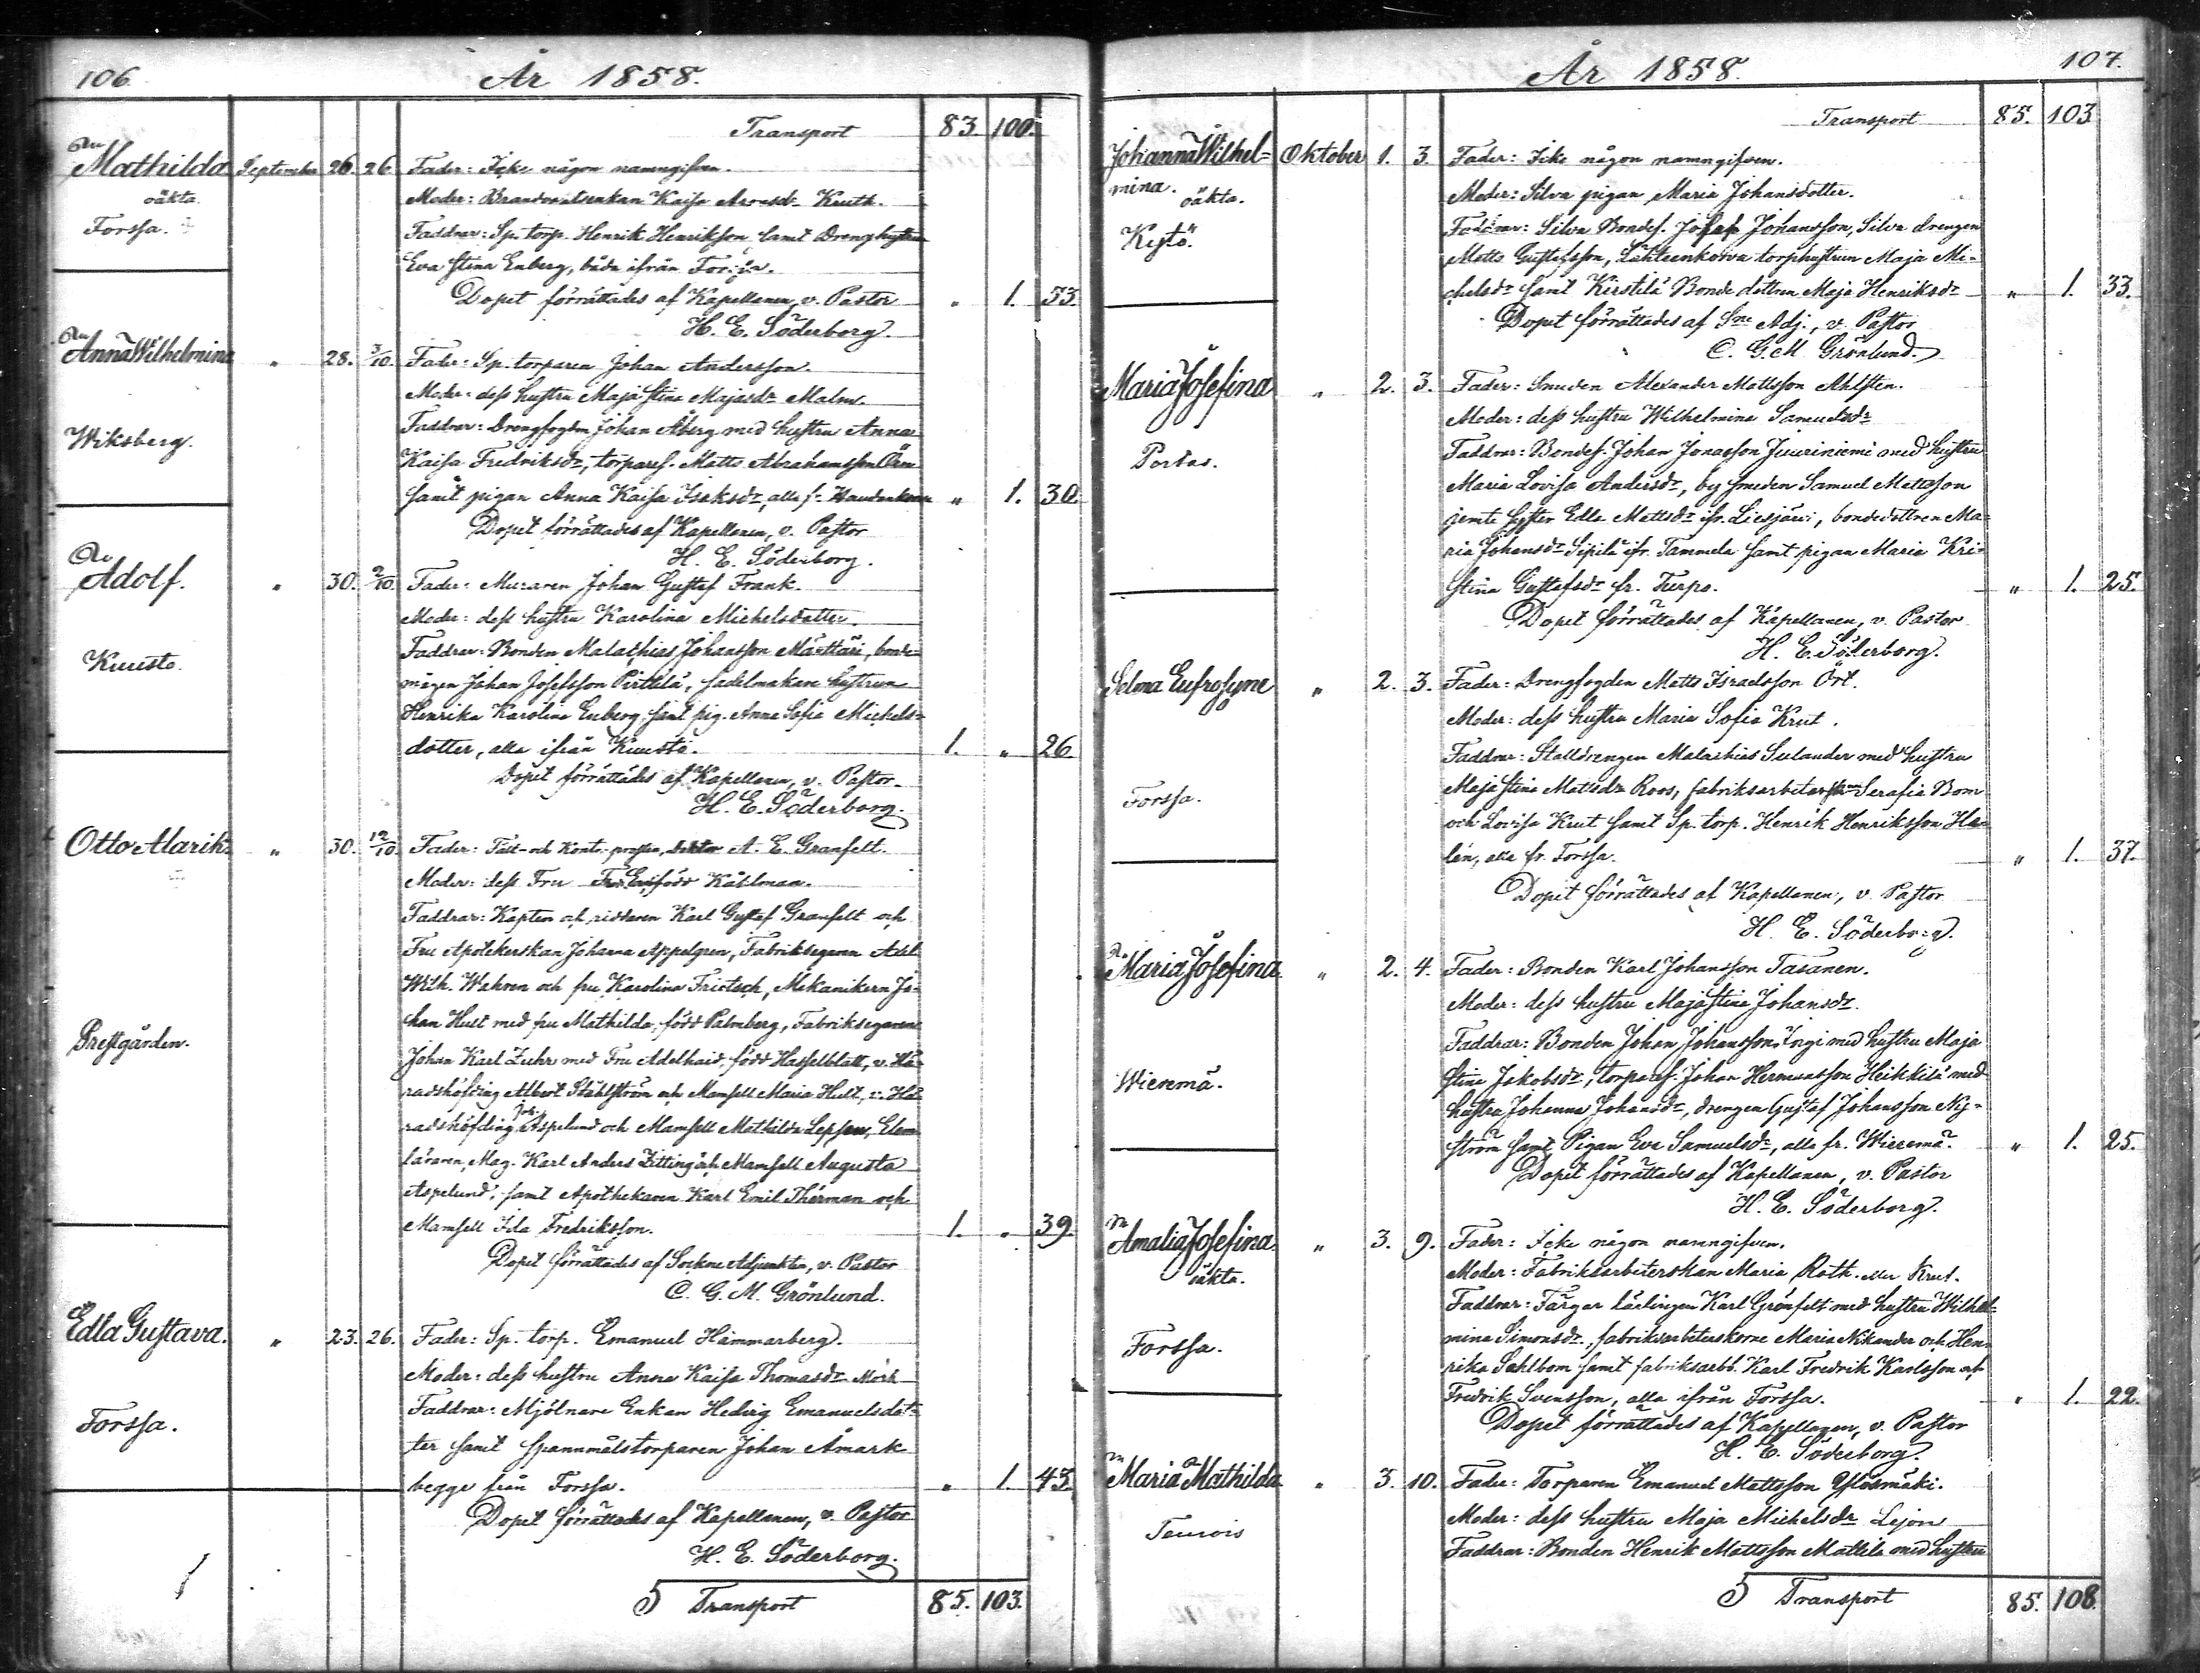 106.
År 1858.
Transport 83. 100.
Mathilda September 26. 26. Fader: Icke någon namngifven.
oäkta. Moder: Brandvaktsenkan Kaisa Kruth.
Forssa. Faddrar: Sp. torp. Henrik Henriksson samt Dreng hustrun
Eva Stina Enberg, båda ifrån Forssa.
Dopet förrättades af Kapellanen, v. Pastor " 1. 33.
H. E. Söderborg.
Anna Wilhelmina " 28. 3/10. Fader: Sp. torparen Johan Andersson.
Moder: dess hustru Maja Stina Majasdr Malm.
Faddrar: Drengfogden Johan Åberg med hustru Anna
Wiksberg. Kaisa Fredriksdr, torpares. Matts Abrahamsson Örn
samt pigan Anna Kaisa Isaksdr, alla fr. " 1. 30.
Dopet förrättades af Kapellanen, v. Pastor
H. E. Söderborg.
Adolf. " 30. 2/10. Fader: Muraren Johan Gustaf Frank.
Moder: dess hustru Karolina Michelsdotter.
Kuusto. Faddrar: Bonden Malachias Johansson Märttäri, bonde-
mågen Johan Josefsson Pirttilä, sadelmakare hustrun
Henrika Karolina Enberg samt pig. Anna Sofia Michels-
dotter, alla ifrån Kuusto. 1. " 26.
Dopet förrättades af Kapellanen, v. Pastor
H. E. Söderborg.
Otto Alarik. " 30. 12/10. Fader: Past- och Kontr. prosten, doktor A. E. Granfelt.
Moder: dess Fru född Kåhlman.
Faddrar: Kapten och riddaren Karl Gustaf Granfelt och
Fru Apotekerskan Johanna Appelgren, Fabriksegaren Adel
Wilh. Wahren och fru Karolina Frietsch, Mekanikern Jo-
han Hult med fru Mathilda, född Palmberg, Fabriksegaren
Prestgården. Johan Karl Zuhr med Fru Adelhaid, född Hasselblatt, v. Hä-
radshöfding Albert Ståhlström och Mamsell Maria Hult, v. Hä-
radshöfding Joh. Aspelund och Mamsell Mathilda, Elem.
läraren, Mag. Karl Anders Zitting och Mamsell Augusta
Aspelund, samt Apothekaren Karl Emil Therman och
Mamsell Ida Fredriksson. 1. " 39.
Dopet förrättades af Sockne Adjunkten, v. Pastor
C. G. M. Grönlund.
Edla Gustava. " 23. 26. Fader: Sp. torp. Emanuel Hammarberg.
Moder: dess hustru Anna Kaisa Thomasdr Mörk
Forssa. Faddrar: Mjölnare Enkan Hedvig Emanuelsdot-
ter samt Spannmålstorparen Johan Åmark
begge från Forssa. " 1. 43.
Dopet förrättades af Kapellanen, v. Pastor
H. E. Söderborg.
5 Transport 85. 103.
107.
År 1858.
Transport 85. 103
Johanna Wilhel- Oktober 1. 3. Fader: Icke någon namngifven.
mina. oäkta. Moder: Silva pigan Maria Johansdotter.
Kystö. Faddrar: Silva Bondes. Josef Johansson, Silva drengen
Matts Gustafsson, Lähteenkorva torphustrun Maja Mi-
chelsdr samt Kirstilä Bonde dottren Maja Henriksdr " 1. 33.
Dopet förrättades af Sne Adj., v. Pastor
C. G. M. Grönlund.
Maria Josefina " 2. 3. Fader: Smeden Alexander Mattsson Ahlsten.
Moder: dess hustru Wilhelmina Samuelsdr
Portas. Faddrar: Bondes. Johan Jonasson Juuriniemi med hustru
Maria Lovisa Andersdr, by smeden Samuel Mattsson
jemte syster Edla Mattsdr ifr. Liesjärvi, bondedottren Ma-
ria Johansdr Sipilä ifr. Tammela samt pigan Maria Kri-
stina Gustafsdr fr. Turpo. " 1. 25.
Dopet förrättades af Kapellanen, v. Pastor
H. E. Söderborg.
Selma Eufrosyne " 2. 3. Fader: Drengfogden Matts Israelsson Ört.
Moder: dess hustru Maria Sofia Krut.
Faddrar: Stalldrengen Malachias Selander med hustru
Forssa. Maja Stina Mattsdr Roos, fabriksarbeterskan Serafia Bom
och Lovisa Krut samt Sp. torp. Henrik Henriksson He-
lén, alla fr. Forssa. " 1. 37.
Dopet förrättades af Kapellanen, v. Pastor
H. E. Söderborg.
Maria Josefina " 2. 4. Fader: Bonden Karl Johansson Tasanen.
Moder: dess hustru Maja Stina Johansdr.
Faddrar: Bonden Johan Johansson Yrgi med hustru Maja
Wieremä. Stina Jakobsdr, torpares. Johan Hermansson Heikkilä med
hustru Johanna Johansdr, drengen Gustaf Johansson Ny-
ström samt Pigan Eva Samuelsdr, alla fr. Wieremä. " 1. 25.
Dopet förrättades af Kapellanen, v. Pastor
H. E. Söderborg.
Amalia Josefina. " 3. 9. Fader: Icke någon namngifven.
oäkta. Moder: Fabriksarbeterskan Maria Roth. eller Krut.
Forssa. Faddrar: Färgar lärlingen Karl Grönfelt med hustru Wilhel-
mina Simonsdr, fabriksarbeterskorna Maria Nikander och Hen-
rika Sahlbom samt fabriksarbb. Karl Fredrik Karlsson och
Fredrik Svensson, alla ifrån Forssa. " 1. 22.
Dopet förrättades af Kapellanen, v. Pastor
H. E. Söderborg.
Maria Mathilda " 3. 10. Fader: Torparen Emanuel Mattsson Ylösmäki.
Teurois Moder: dess hustru Maja Michelsdr Lejon
Faddrar: Bonden Henrik Mattsson Mattila med hustru
5 Transport 85. 108.